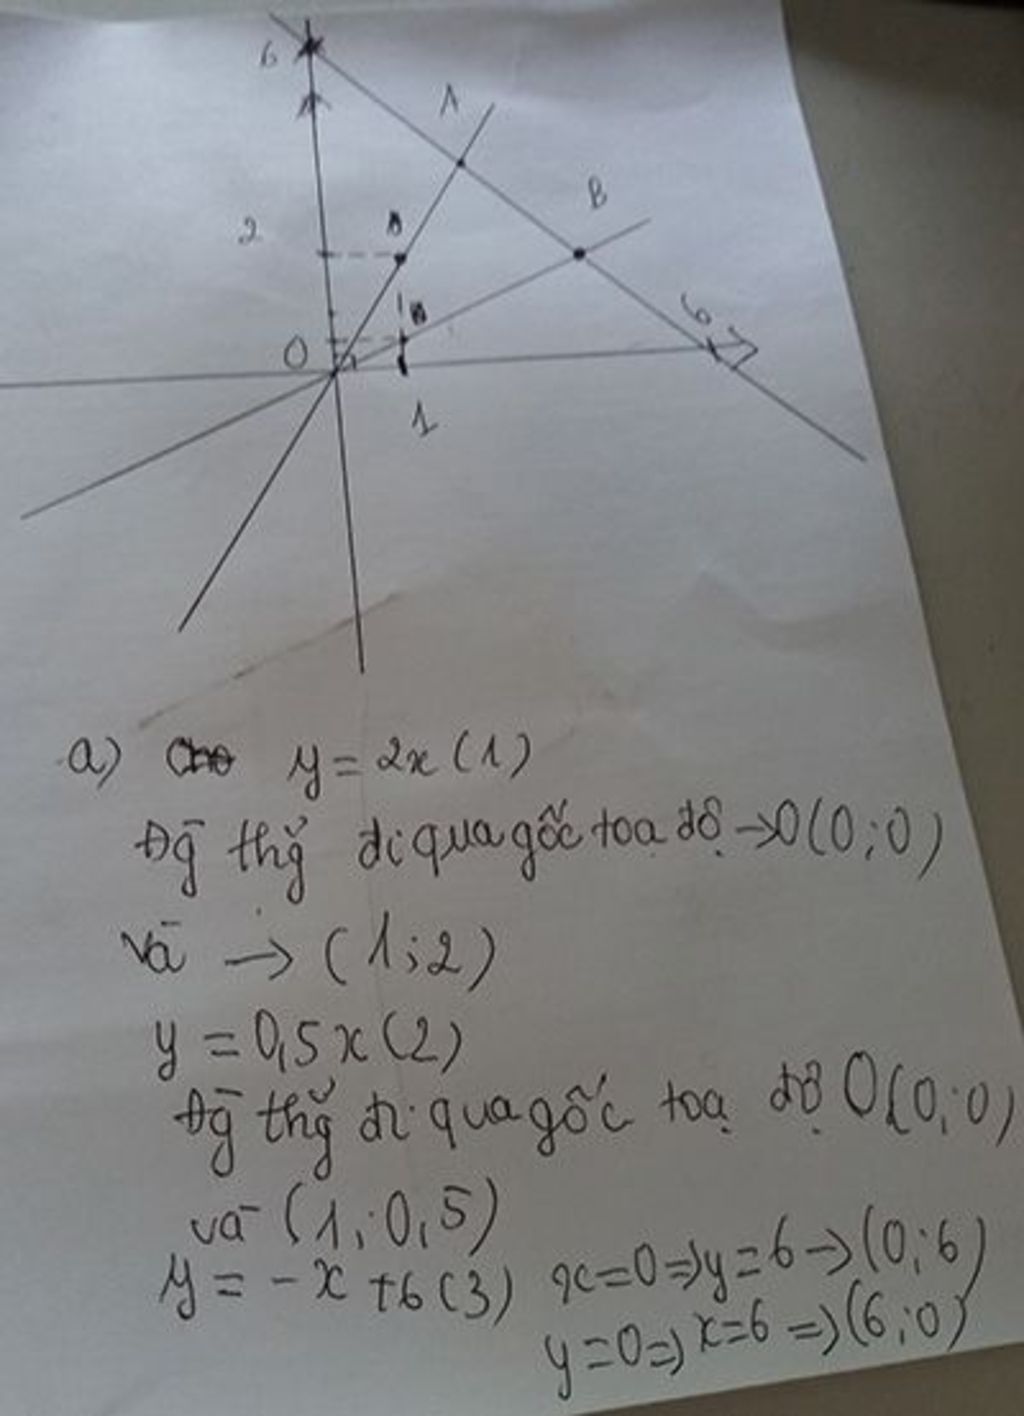 6
A
B
2
6
O
1
a) y = 2x (1)
Đg thg đi qua gốc toạ độ → O(0; 0)
và → (1; 2)
y = 0,5x (2)
Đg thg đi qua gốc toạ độ O(0; 0)
và (1; 0,5)
y = -x + 6 (3) x = 0 ⇒ y = 6 → (0; 6)
y = 0 ⇒ x = 6 ⇒ (6; 0)